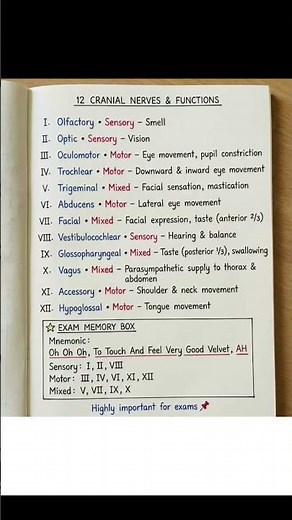 12 CRANIAL NERVES & FUNCTIONS
I. Olfactory • Sensory – Smell
II. Optic • Sensory – Vision
III. Oculomotor • Motor – Eye movement, pupil constriction
IV. Trochlear • Motor – Downward & inward eye movement
V. Trigeminal • Mixed – Facial sensation, mastication
VI. Abducens • Motor – Lateral eye movement
VII. Facial • Mixed – Facial expression, taste (anterior 2/3)
VIII. Vestibulocochlear • Sensory – Hearing & balance
IX. Glossopharyngeal • Mixed – Taste (posterior 1/3), swallowing
X. Vagus • Mixed – Parasympathetic supply to thorax &
abdomen
XI. Accessory • Motor – Shoulder & neck movement
XII. Hypoglossal • Motor – Tongue movement
EXAM MEMORY BOX
Mnemonic:
Oh Oh Oh, To Touch And Feel Very Good Velvet, AH
Sensory: I, II, VIII
Motor: III, IV, VI, XI, XII
Mixed: V, VII, IX, X
Highly important for exams 📌